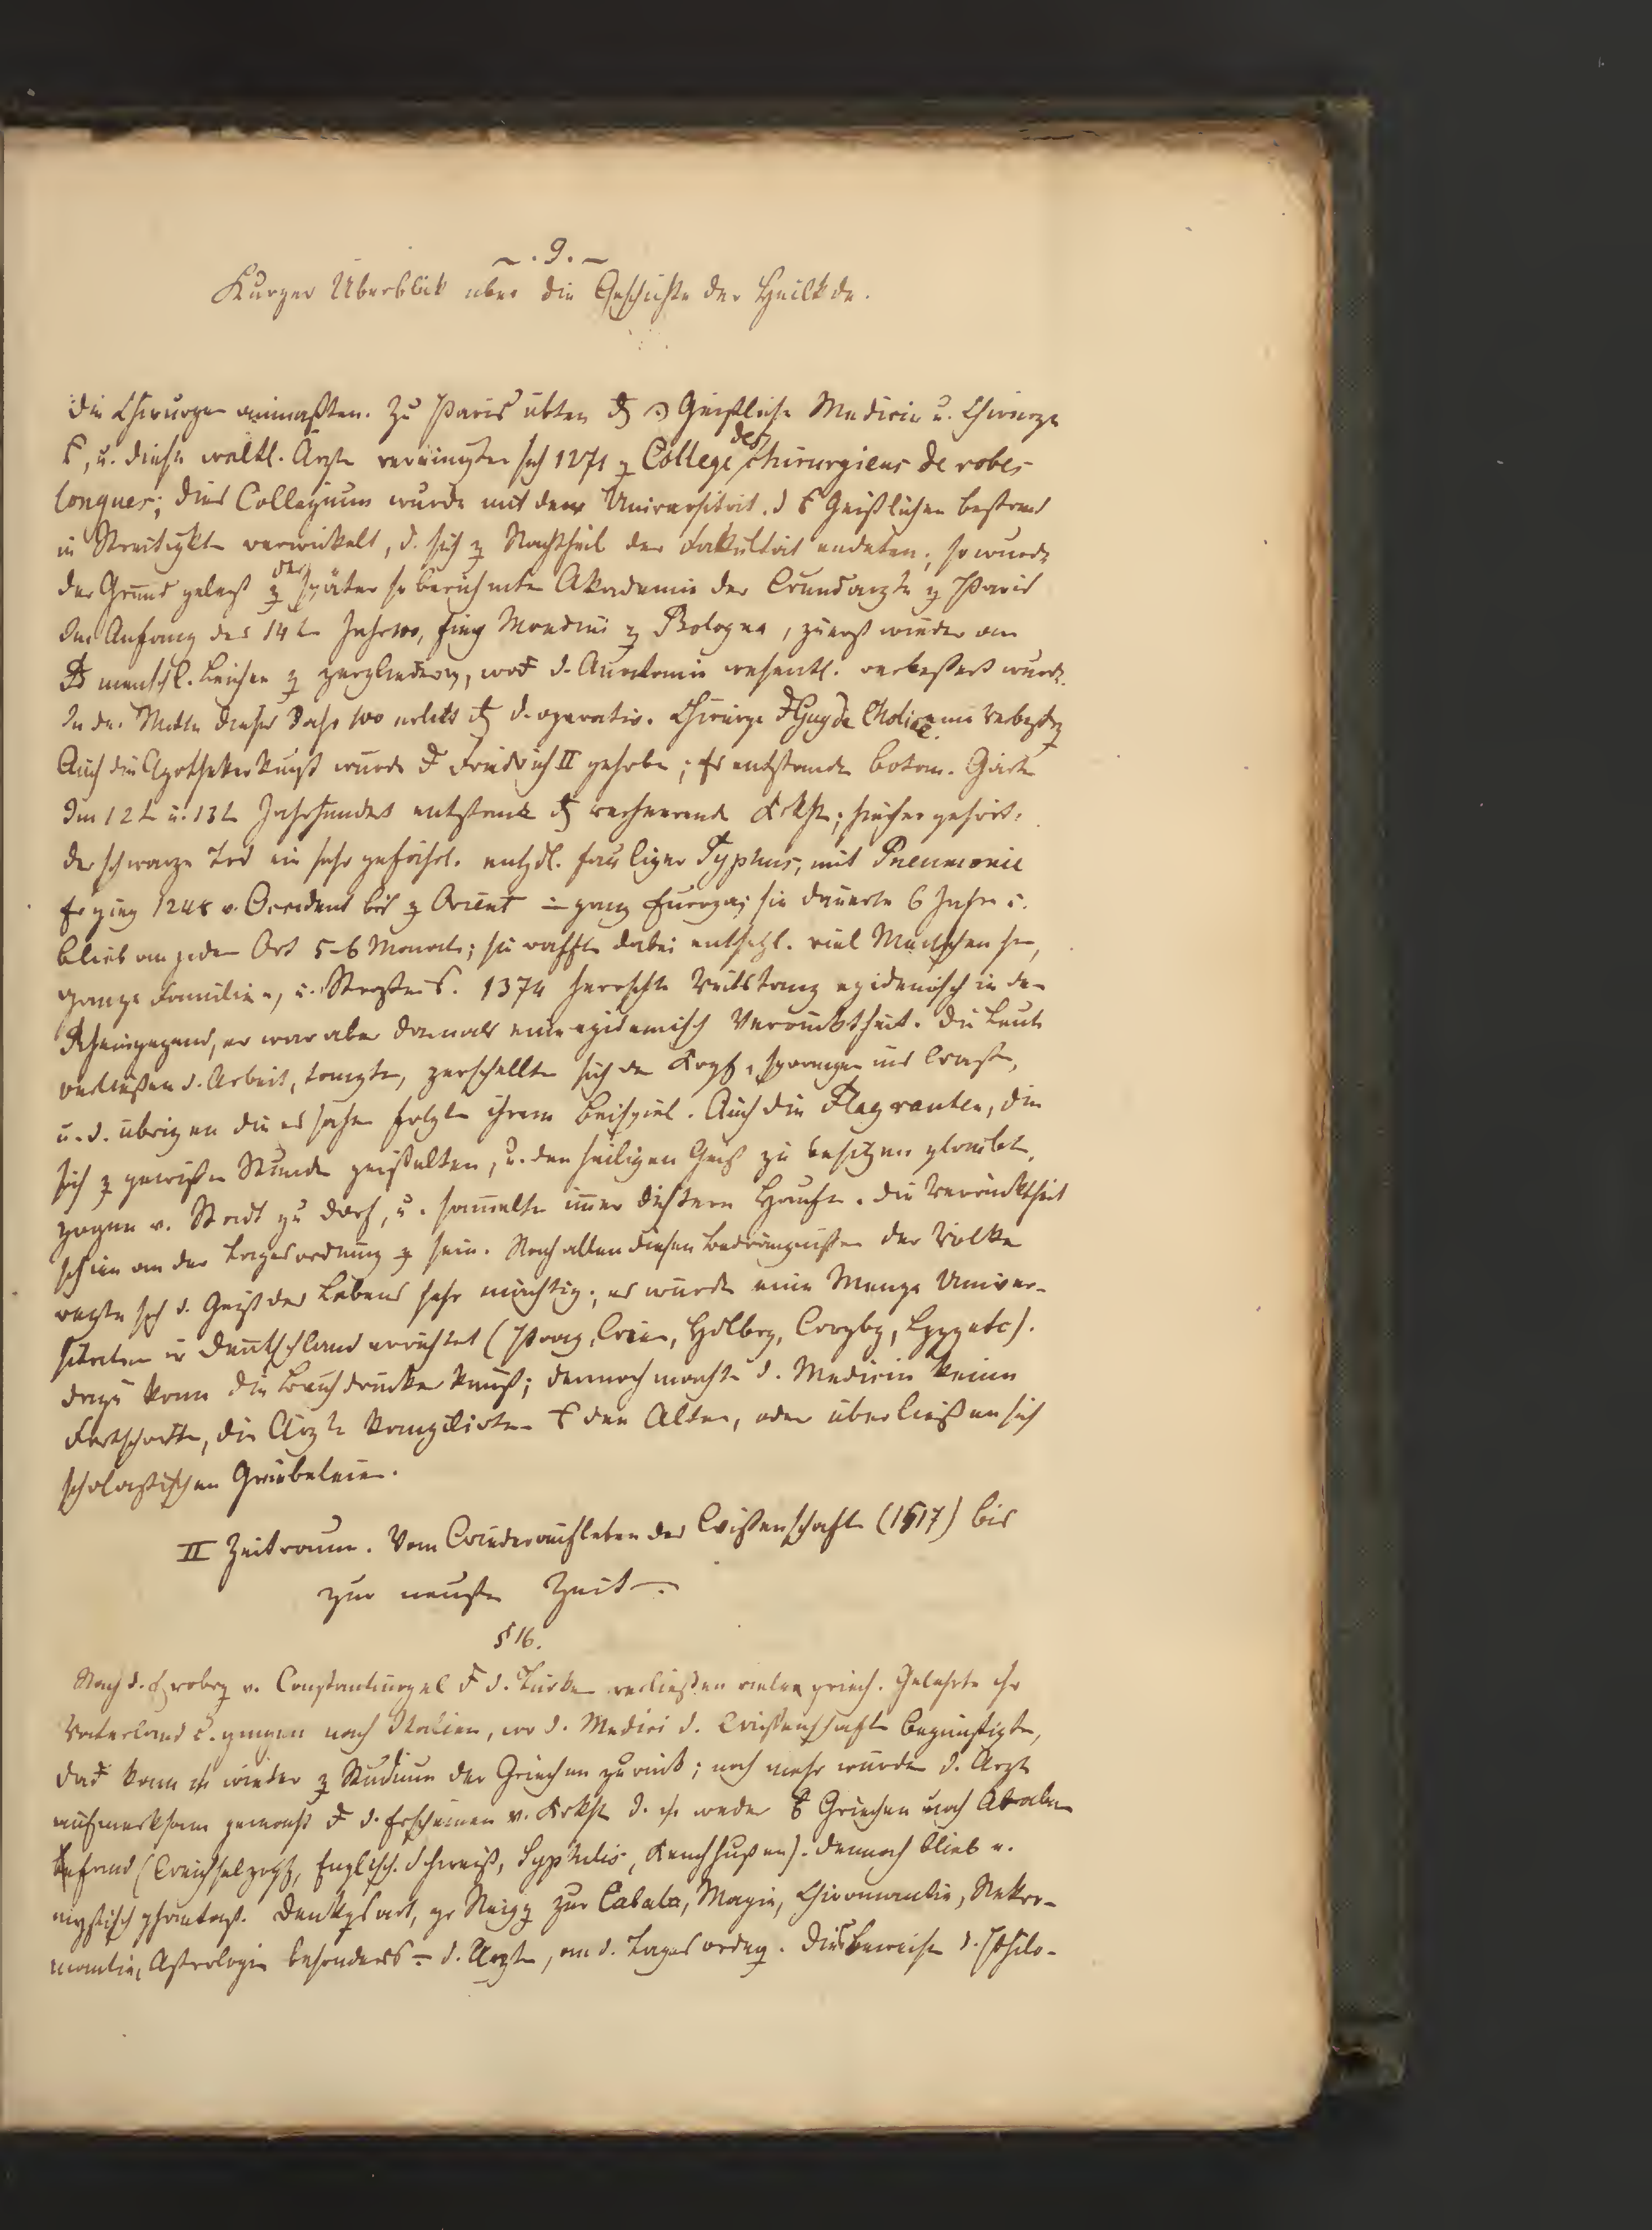 ~ . 9. ~
Kurzer Überblick über die Geschichte der Heilkde.
die Chirurgen anmaßten. Zu Paris übten Geistliche Medicin u. Chirurgie
, u. diese weltl. Ärzte vereinigten sich 1271 z College des chirurgiens de robes
longues; dies Collegium wurde mit der Universität. d Geistlichen bestand
in Streitigktn verwickelt, d. sich z Nachtheil der Fakultät endeten; so wurde
der Grund gelegt z der später so berühmten Akademie der Wundärzte z Paris
Im Anfang des 14t Jahr100, fing Mondini z Bologna, zuerst wieder an
menschl. Leichen z zergliedern, d. Anatomie wesentl. verbessert wurde.
In der Mitte dieses Jahr100 erlitt d. operativ. Chirurgie Guy de Choliac eine Verbeßrg
Auch die Apothekerkunst wurde Friedrich II gehoben; Es entstanden botan. Gärten
Im 12t u. 13t Jahrhundert entstand verheerende Krkhtn; hieher gehört:
der schwarze Tod ein sehr gefährl. entzdl. fauliger Typhus, mit Pneumonie
Er ging 1248 v. Occident bis z Orient ganz Europa; sie dauerte 6 Jahre u.
blieb an jedem Ort 5-6 Monate; sie raffte dabei entsetzl. viel Menschen hin,
ganze Familien, u. 1374 herrschte Veitstanz epidemisch in der
Rheingegend, er war aber damals eine epidemisch Verrücktheit. Die Leute
verließen d. Arbeit, tanzten, zerschellten sich den Kopf, sprangen ins Wasser,
u. d. übrigen die es sahen folgten ihrem Beispiel. Auch die Flagranten, die
sich z gewissen Stunden geißelten, u. den heiligen Geist zu besitzen glaubten,
zogen v. Stadt zu Dorf, u. sammelten immer Haufen. Die Verrücktheit
schien an der Tagesordnung z sein. Nach allen diesen Bedrängnissen der Völker
regte sich d. Geist des Lebens sehr mächtig; es wurde eine Menge Univer-
sitäten in Deutschland errichtet (Prag, Wien, Hdlbrg, Wrzbg, Lpzg etc).
dazu kam die Buchdruckerkunst; dennoch machte d. Medicin keine
Fortschritte, die Ärzte kompilirten den Alten, oder überließen sich
scholastischen Grübeleien.
II Zeitraum. Vom Wiederaufleben der Wissenschaften (1517) bis
zur neusten Zeit.
§ 16.
Nach d. Erobrg v. Constantinopel d. Türken verließen viele griech. Gelehrte ihr
Vaterland u. gingen nach Italien, wo d. Medici d. Wissenschaften begünstigten,
kam wieder z Studium der Griechen zurück; noch mehr wurden d. Ärzte
aufmerksam gemacht d. Erscheinen v. Krkhtn d. weder Griechen noch Araber
befand (Weichselzopf, Englisch. Schweiß, Syphilis, Keuchhusten). Dennoch blieb e.
mystisch phantast. Denkgsart, Neigg zur Cabala, Magie, Chiromantie, Nekro-
mantie, Astrologie besonders d. Ärzten, an d. Tagesordng. Dies beweisen d. Philo-